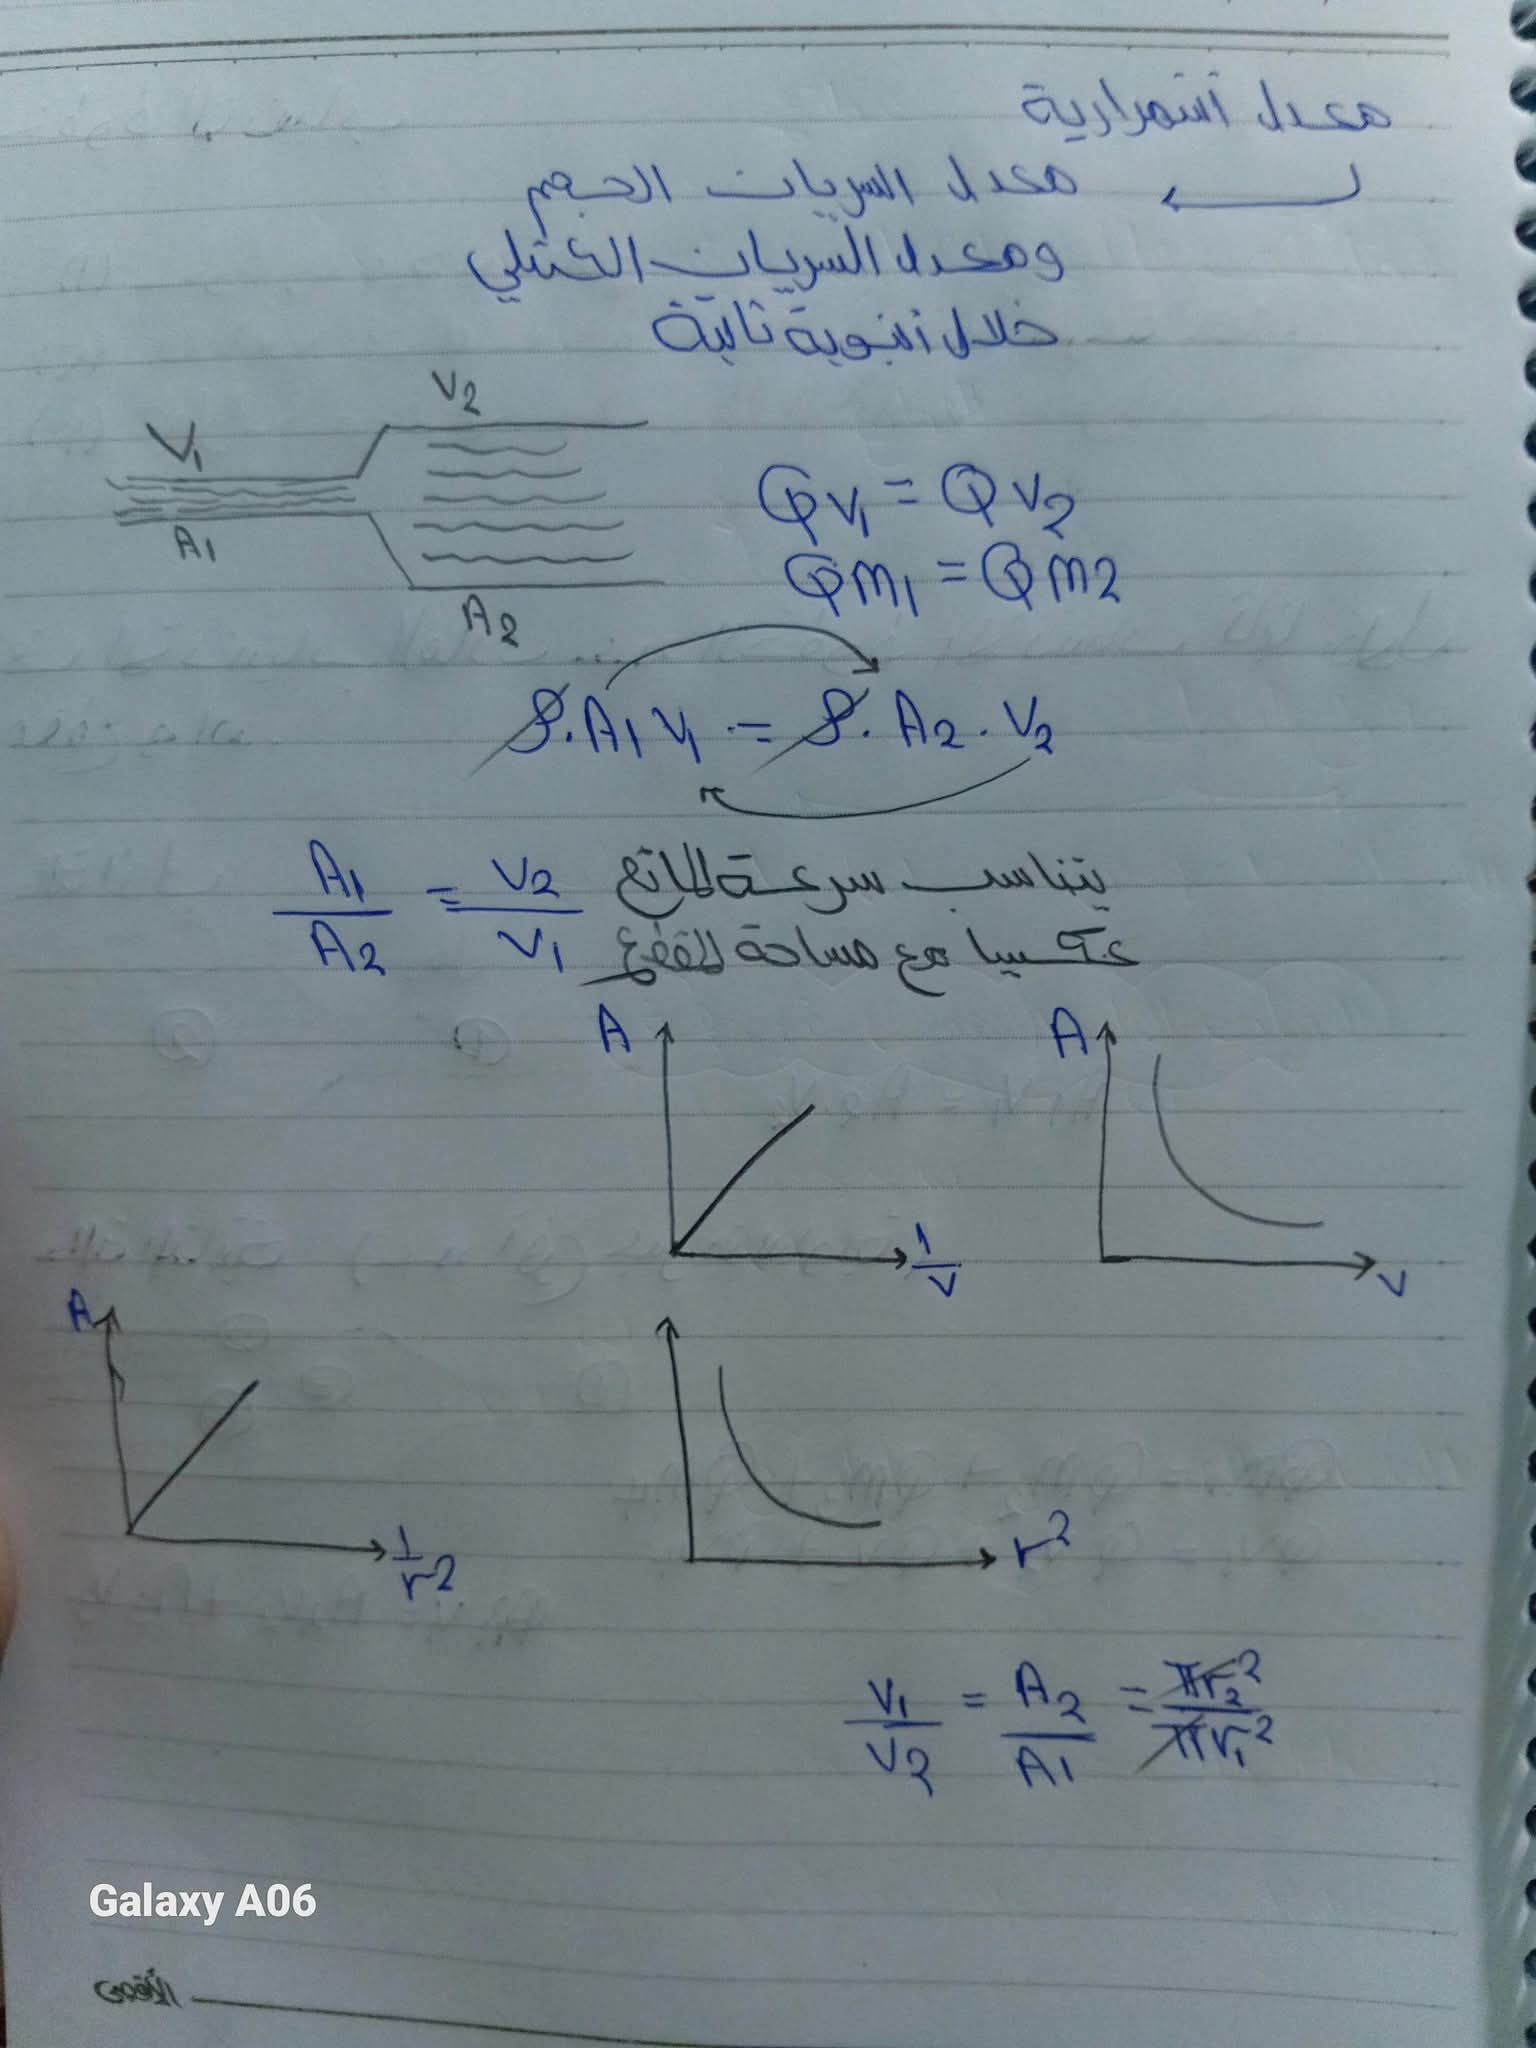 معدل استمرارية
معدل السريان الحجم
ومعدل السريان الكتلي
خلال أنبوبة ثابتة
V₂
V₁
A₁
A₂
Qv₁ = Qv₂
Qm₁ = Qm₂
ρ.A₁ V₁ = ρ. A₂ . V₂
A₁/A₂ = V₂/V₁
يتناسب سرعة المائع
عكسيا مع مساحة المقطع
A
1/V
A
V
A
1/r²
r²
V₁/V₂ = A₂/A₁ = πr₂²/πr₁²
Galaxy A06
الأقصى